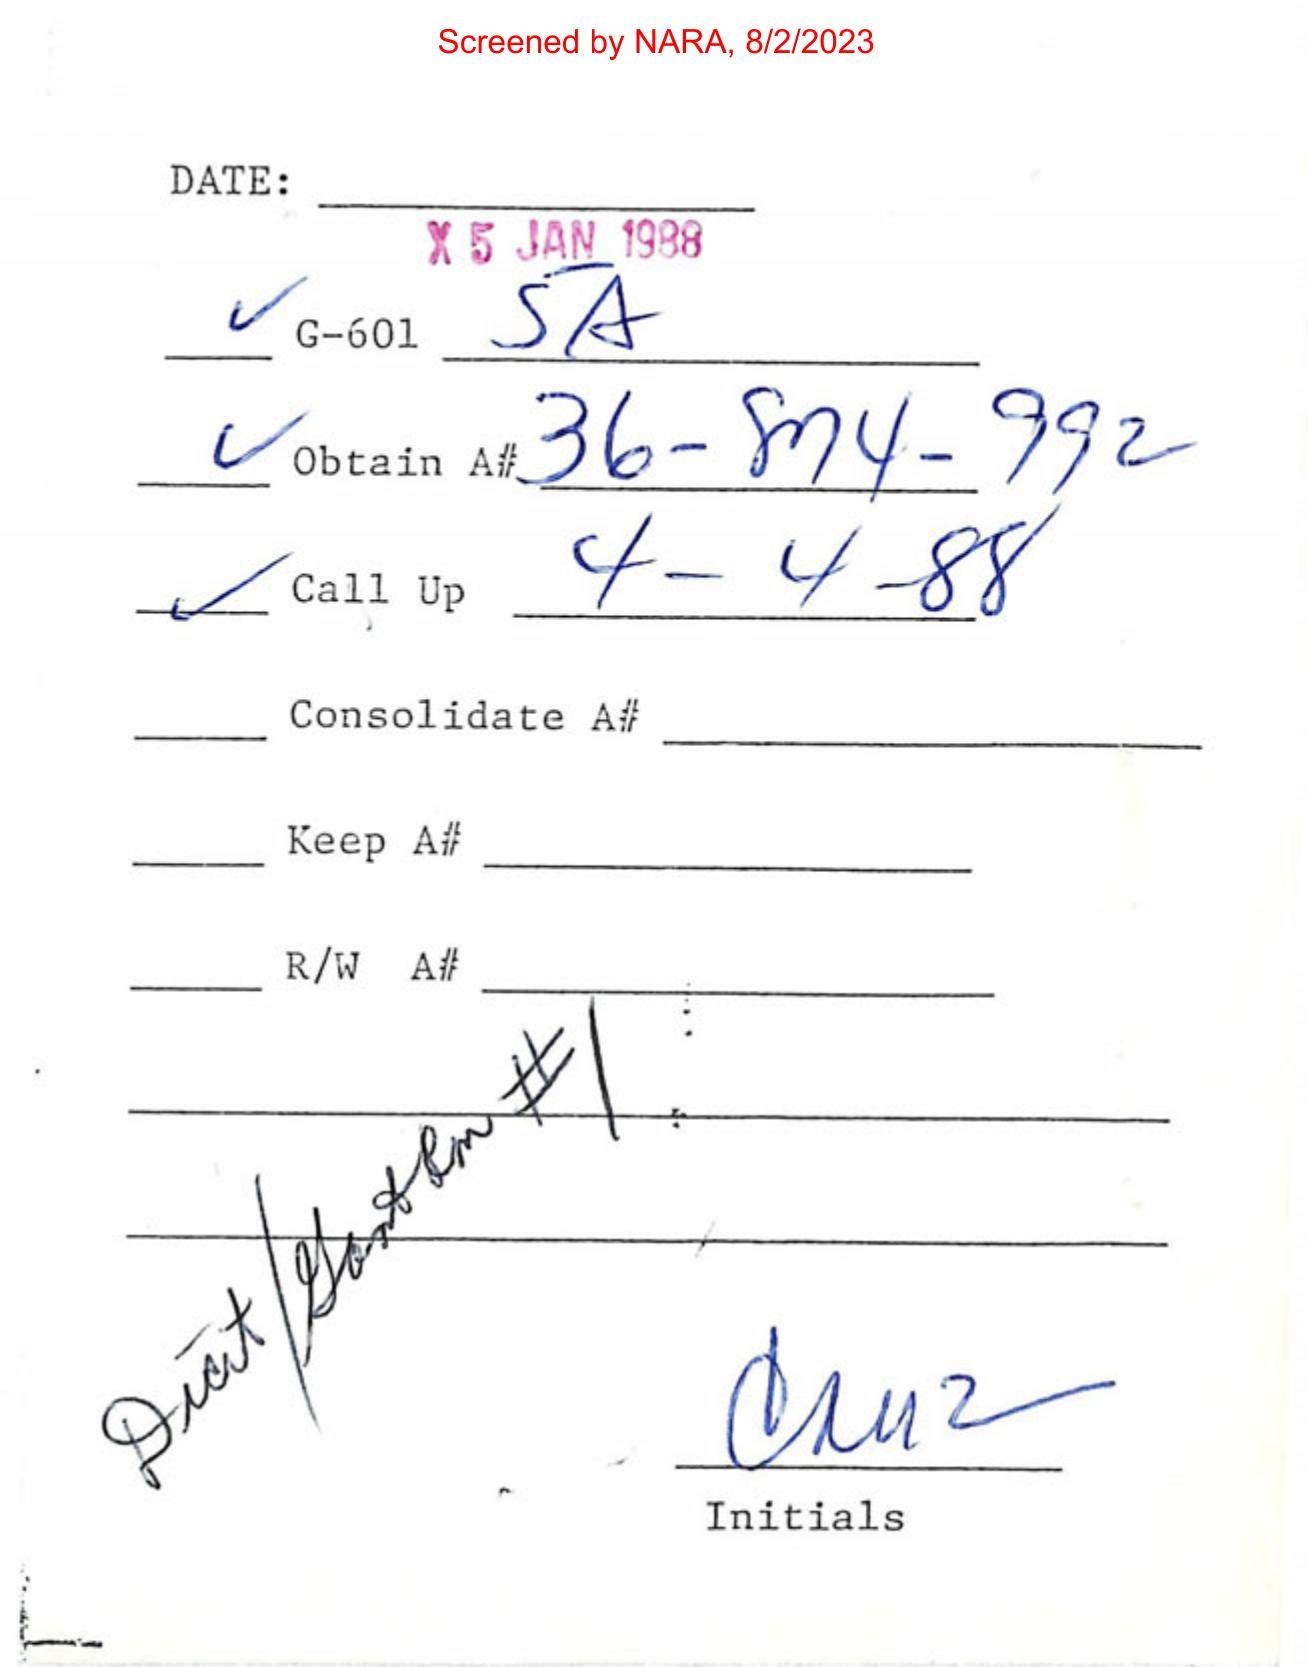 Screened by NARA, 8/2/2023
DATE:
X 5 JAN 1988
✓ G-601 5A
✓ Obtain A# 36-874-992
✓ Call Up 4-4-88
Consolidate A#
Keep A#
R/W A#
#1
Cruz
Initials